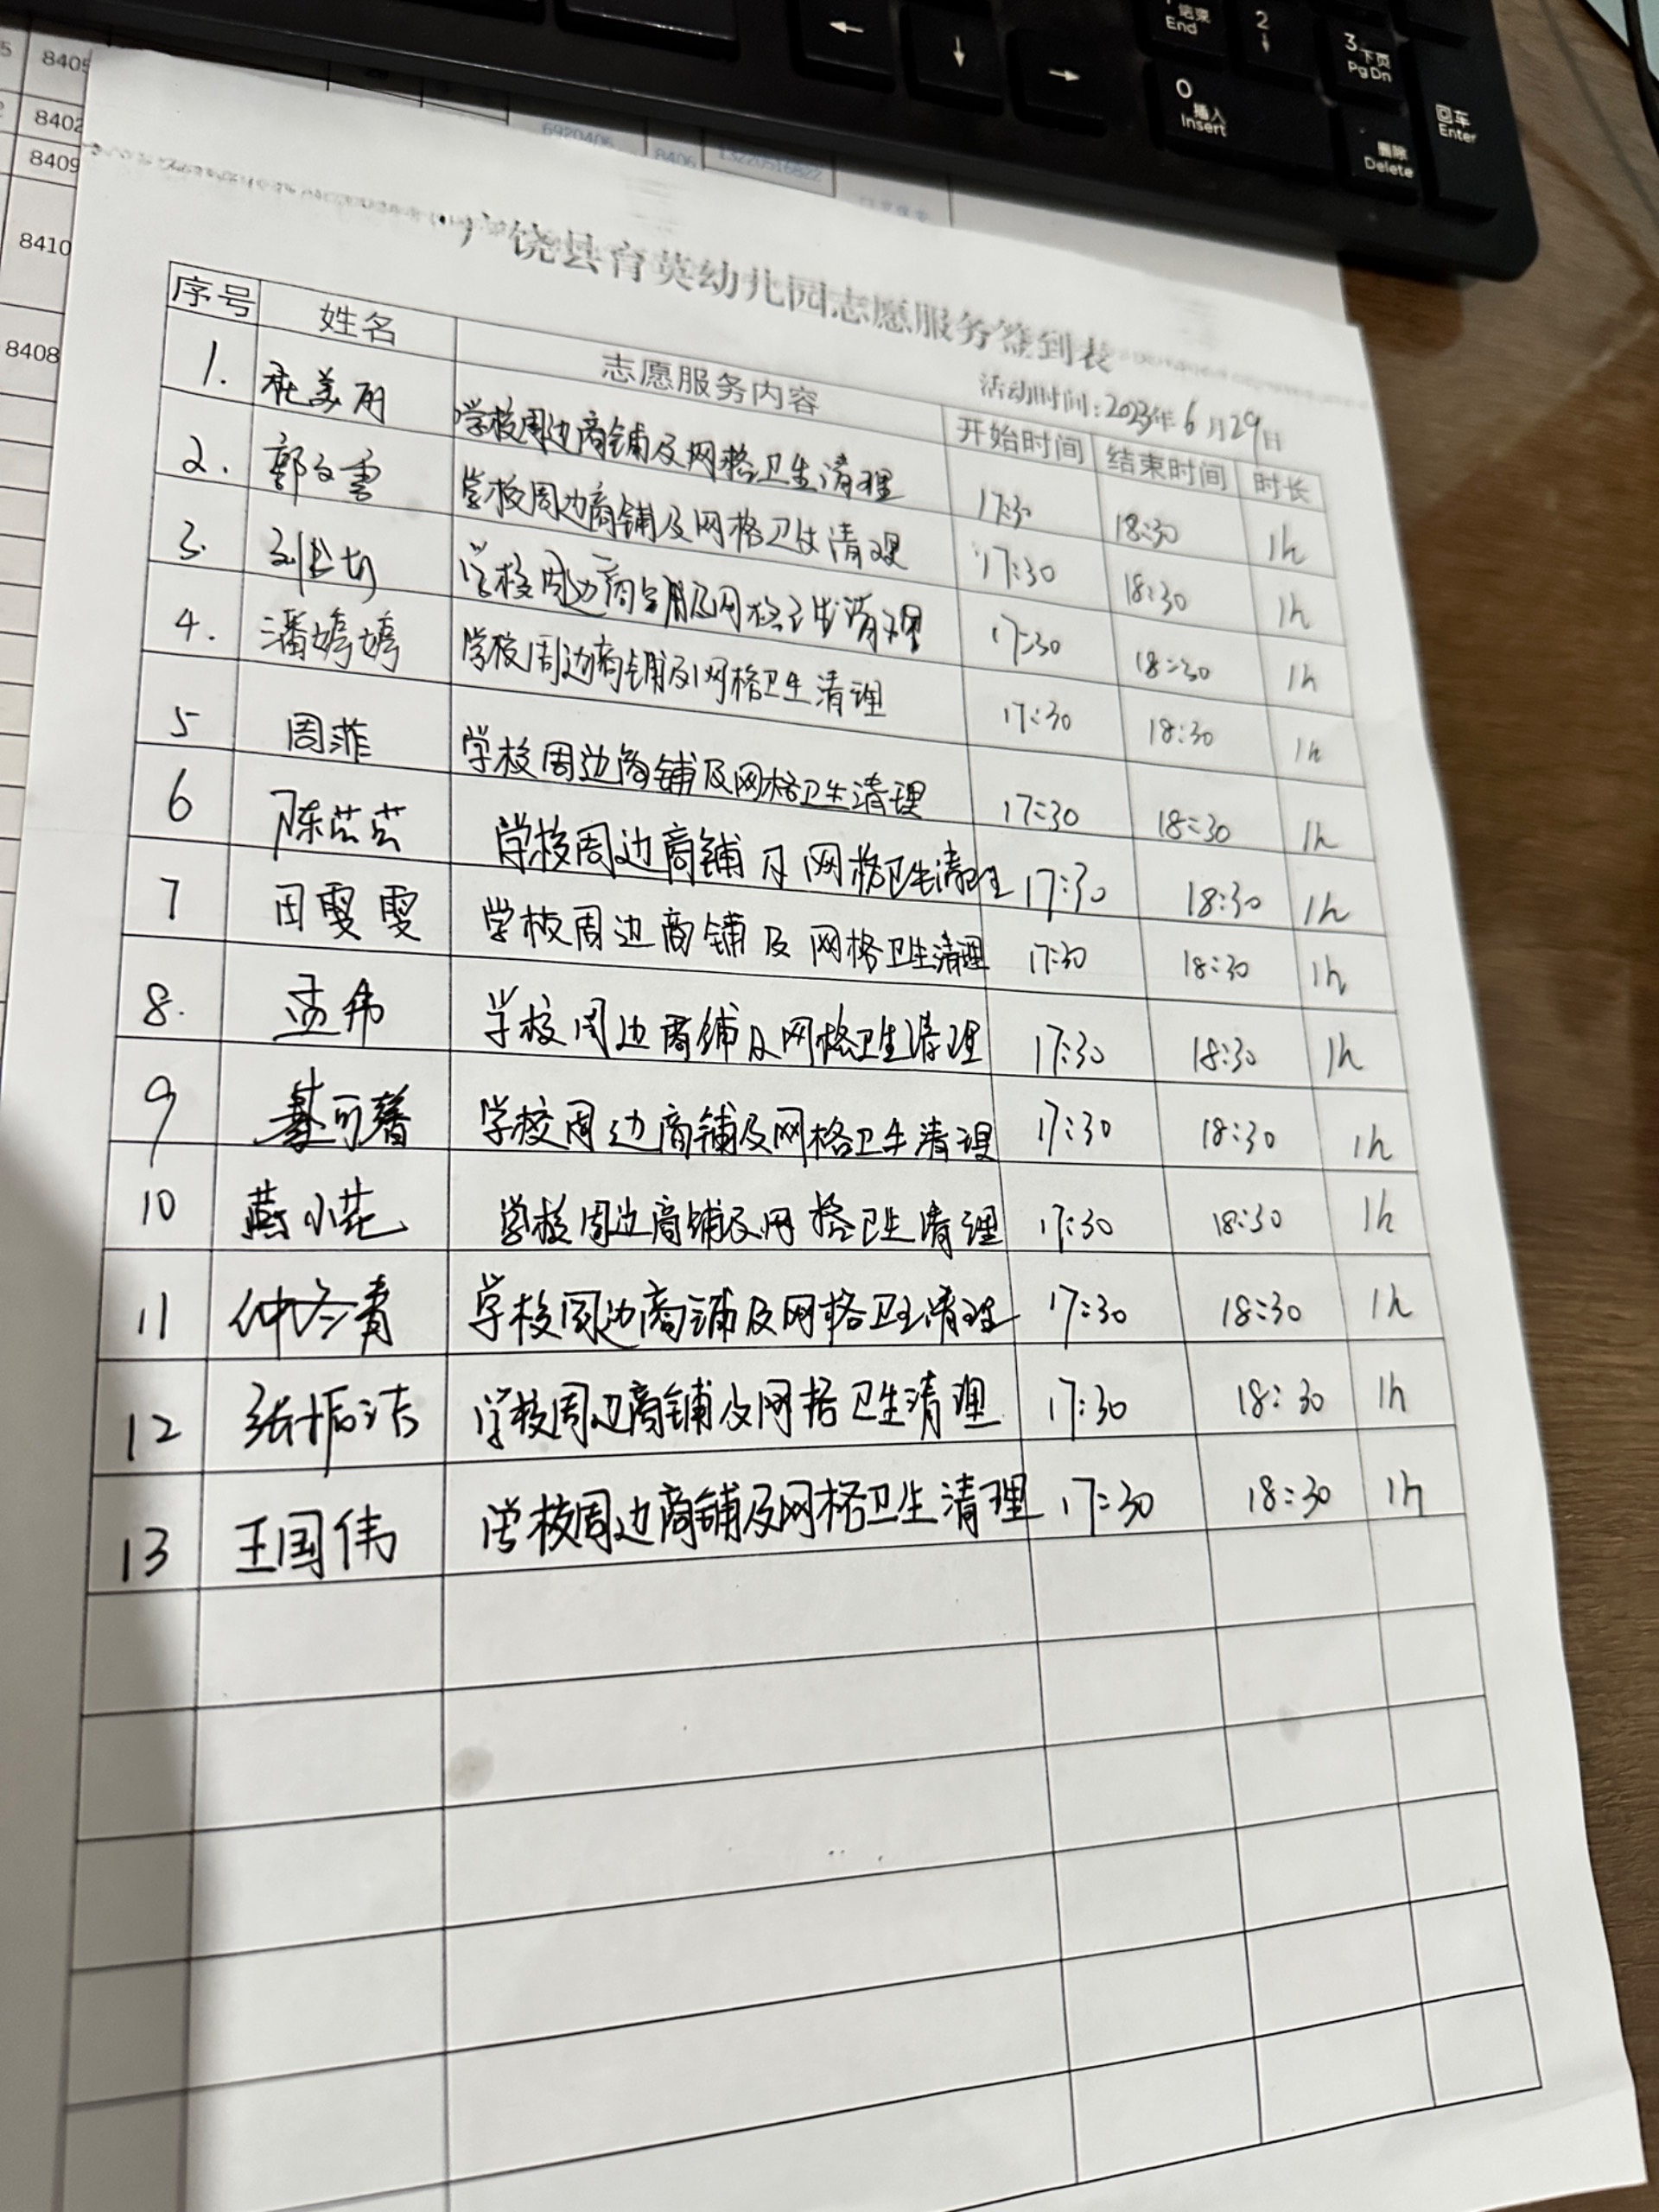 结束
End
2
3 下页
PgDn
0
插入
Insert
删除
Delete
回车
Enter
8405
8402
8409
8410
8408
6920406
8406
13220516822
广饶县育英幼儿园志愿服务签到表
活动时间:2023年6月29日
序号 姓名 志愿服务内容 开始时间 结束时间 时长
1. 杜美丽 学校周边商铺及网格卫生清理 17:30 18:30 1h
2. 郭文雪 学校周边商铺及网格卫生清理 17:30 18:30 1h
3. 学校周边商铺及网格卫生清理 17:30 18:30 1h
4. 潘婷婷 学校周边商铺及网格卫生清理 17:30 18:30 1h
5 周菲 学校周边商铺及网格卫生清理 17:30 18:30 1h
6 陈芸芸 学校周边商铺及网格卫生清理 17:30 18:30 1h
7 田雯雯 学校周边商铺及网格卫生清理 17:30 18:30 1h
8. 孟伟 学校周边商铺及网格卫生清理 17:30 18:30 1h
9 綦可馨 学校周边商铺及网格卫生清理 17:30 18:30 1h
10 燕小花 学校周边商铺及网格卫生清理 17:30 18:30 1h
11 仲冬青 学校周边商铺及网格卫生清理 17:30 18:30 1h
12 学校周边商铺及网格卫生清理 17:30 18:30 1h
13 王国伟 学校周边商铺及网格卫生清理 17:30 18:30 1h